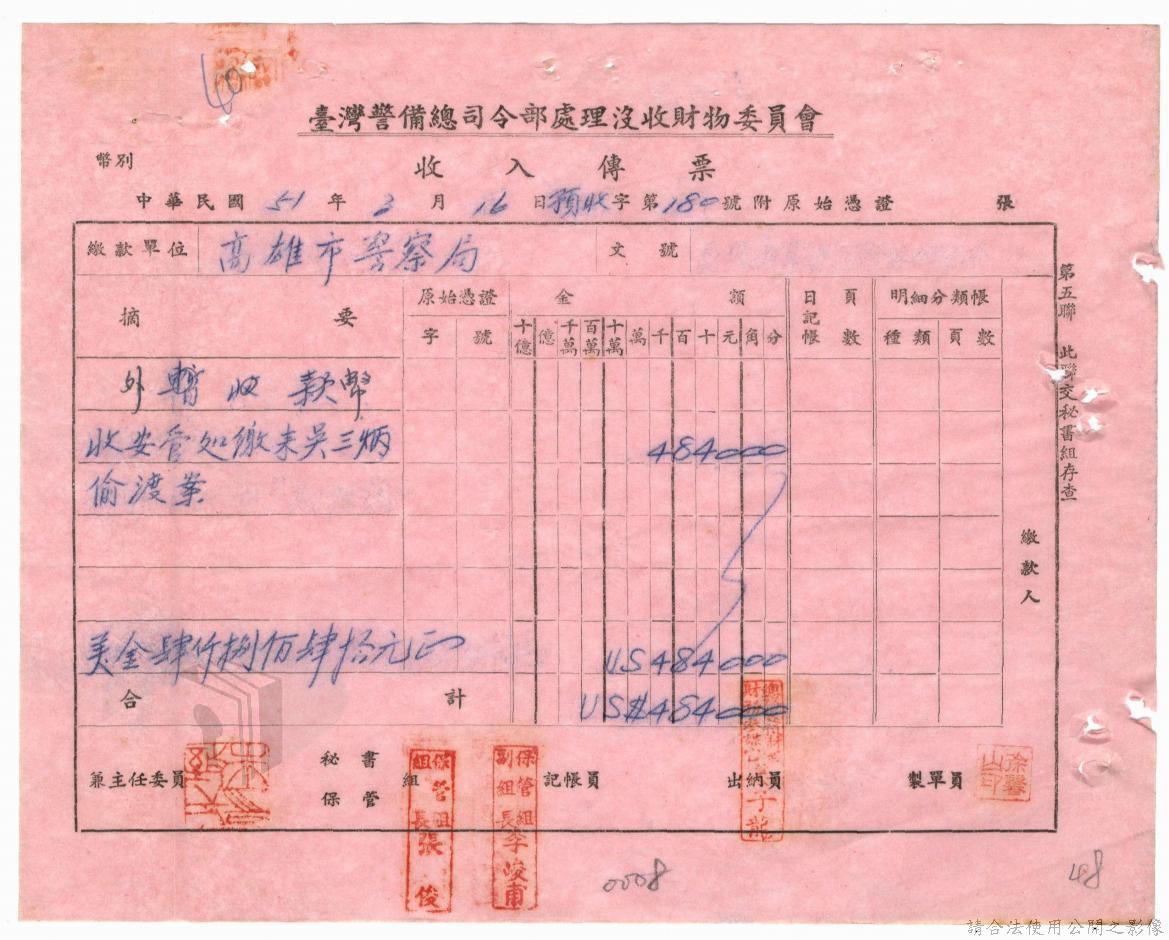 臺灣警備總司令部處理沒收財物委員會
幣別
收入傳票
中華民國 51 年 3 月 16 日 預收 字第 180 號附原始憑證 張
繳款單位 高雄市警察局 文號
摘要 原始憑證 金額 日記帳 頁數 明細分類帳
字 號 十億 億 千萬 百萬 十萬 萬 千 百 十 元 角 分 種類 頁數
外暫收款幣
收安管处繳来吳三炳 484000
偷渡案
美金肆仟捌佰肆拾元正 US484000
合計 US$484000
繳款人
第五聯 此聯交秘書組存查
兼主任委員 秘書保管組 記帳員 出納員 製單員
保管組組長張俊
保管組副組長李峻甫
涂馨山印
0008
48
請合法使用公開之影像